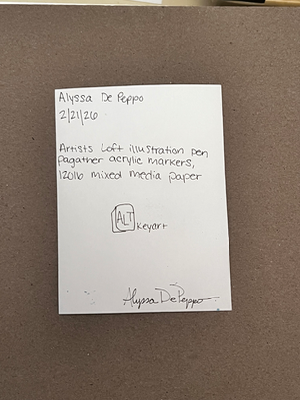 Alyssa De Peppo
2/21/26
Artists Loft illustration pen
pagather acrylic markers,
120lb mixed media paper
ALT
Keyart
Alyssa De Peppo